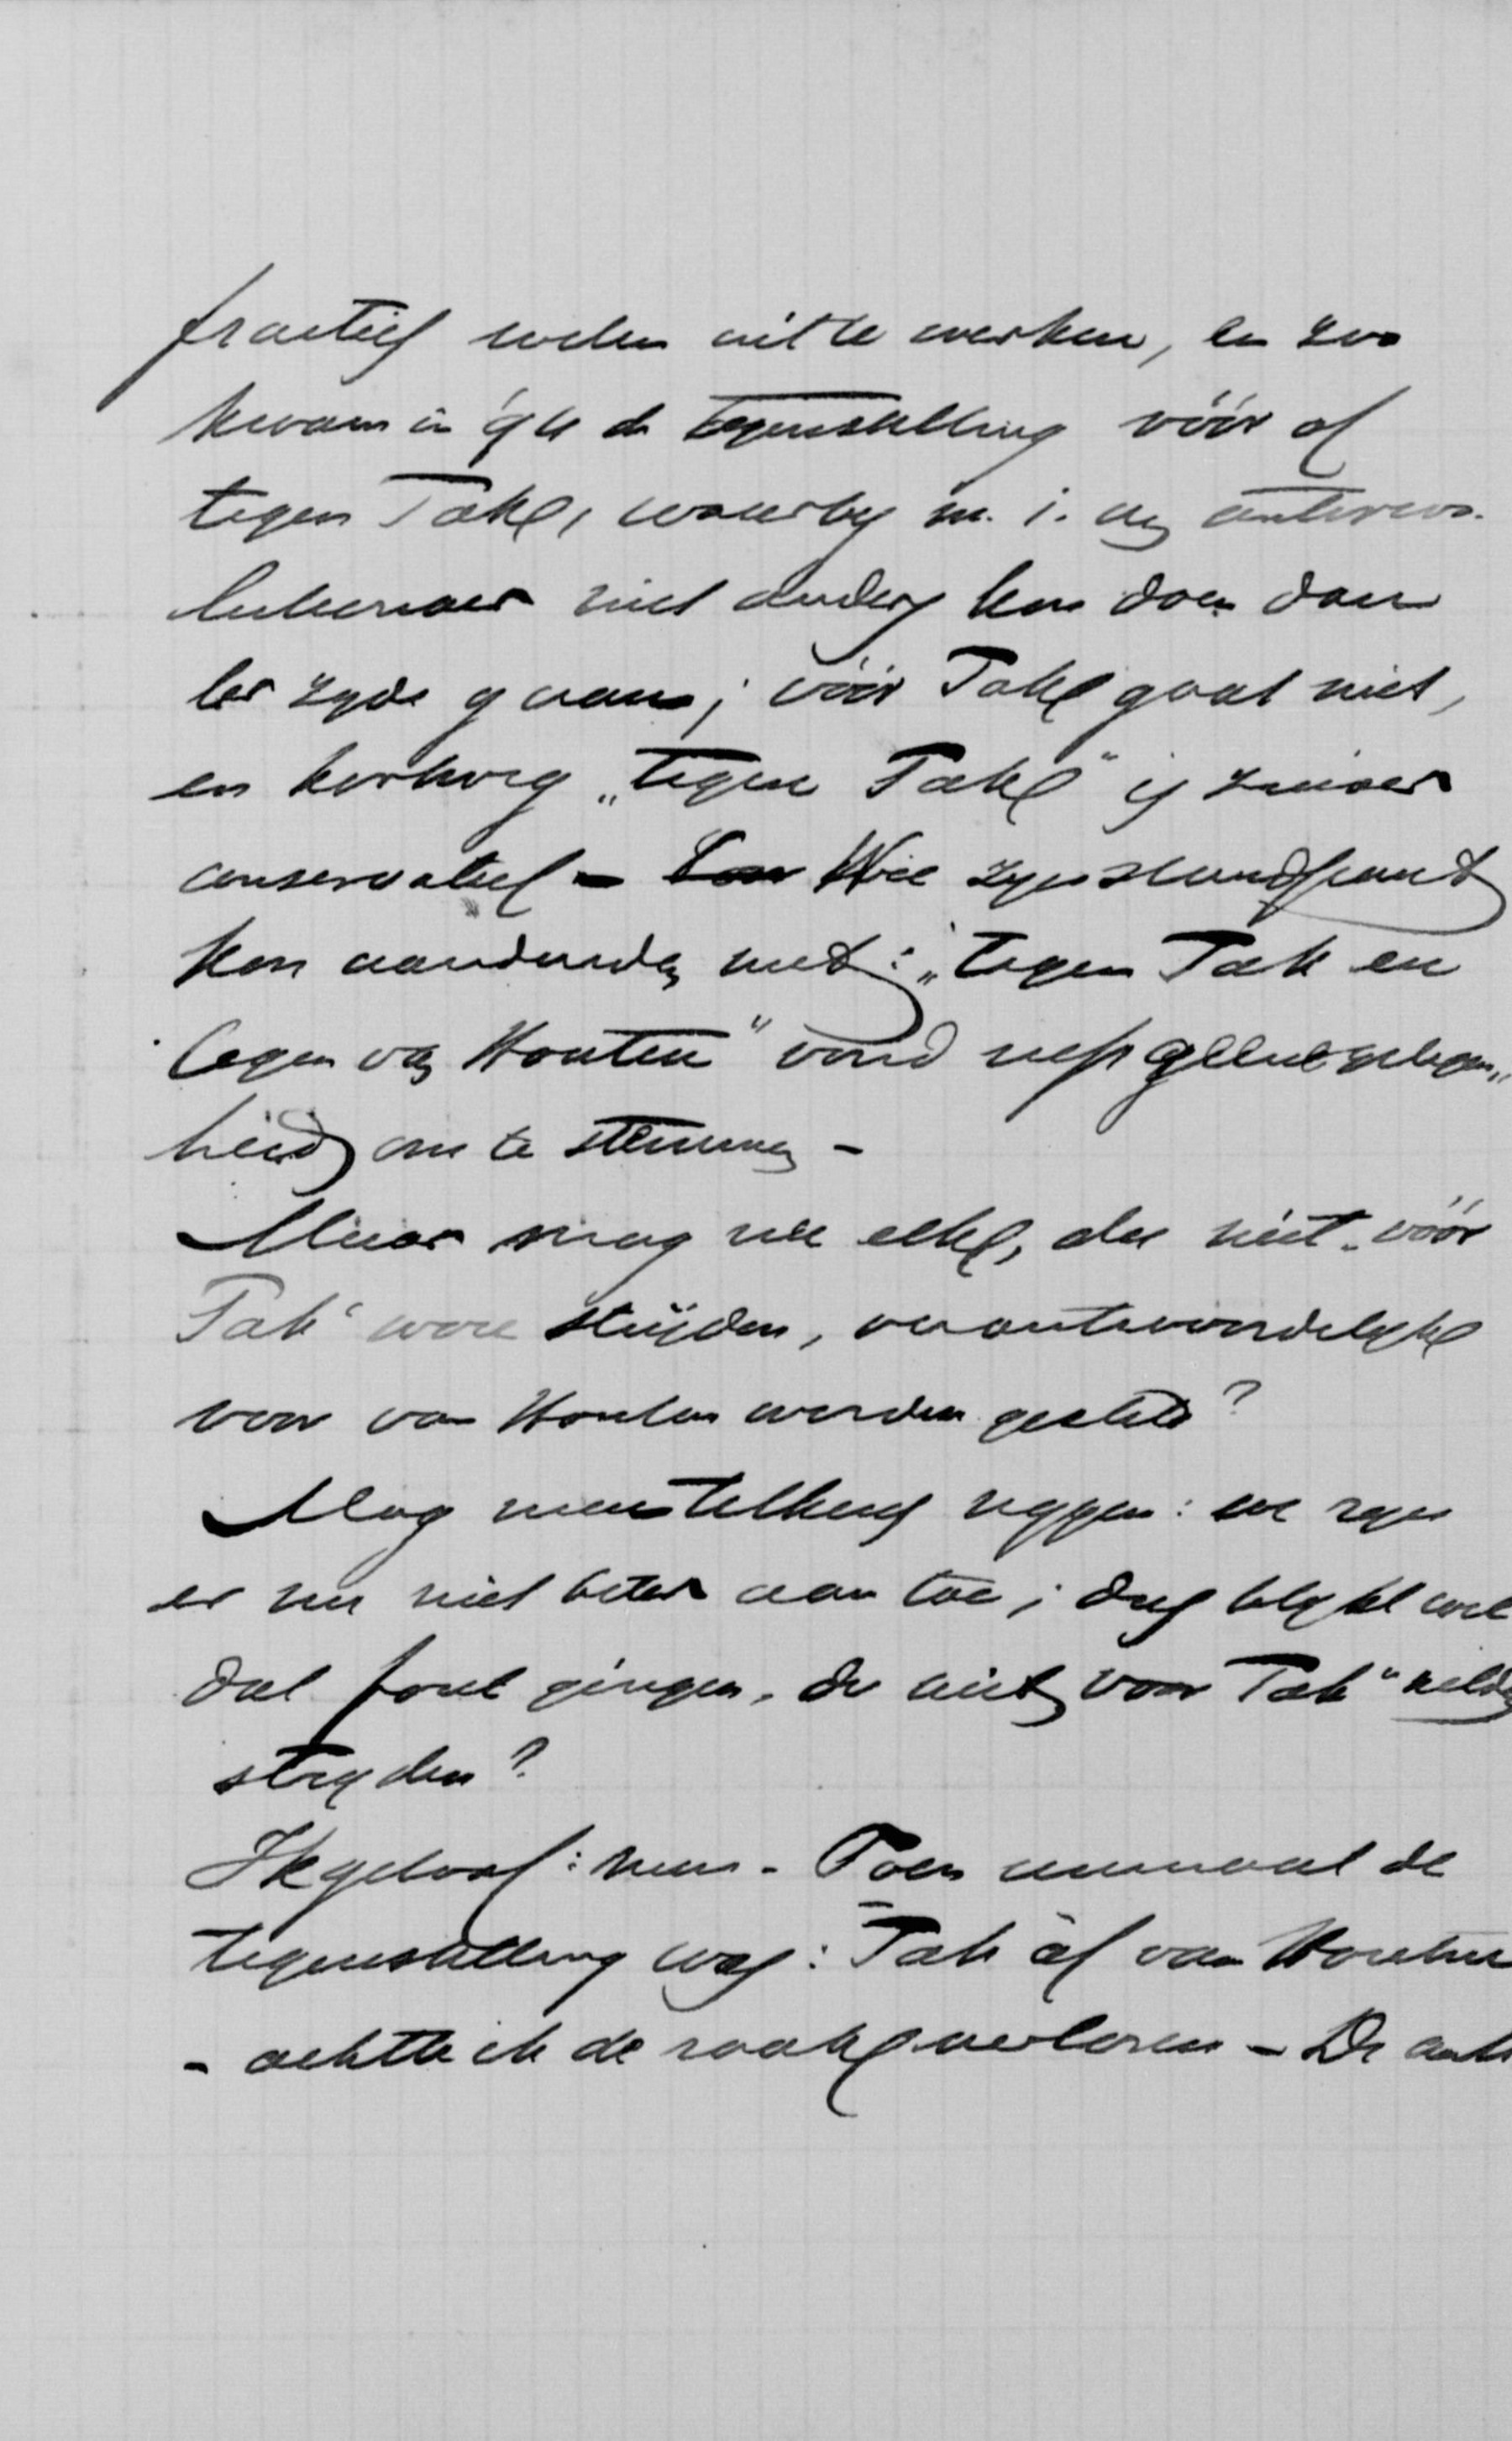 practisch uit te werken, en zoo
kwam in '94 de tegenstelling vóór of
tegen Takk, waarby m. i. een antirevo-
lutionair niet anders kon doen dan
ter zyde gaan; vóór Takk gaat niet,
en kortweg „tegen Takk" is zuiver
conservatief – Wie zyn standpunt
kon aanduiden met: „tegen Tak en
tegen van Houten" vond geen gelegen„
heid om te stemmen –
Maar mag nu elk, die niet „vóór
Tak" wou stryden, verantwoordelyk
voor van Houten worden gesteld?
Mag men telkens zeggen: we zyn
er nu niet beter aan toe; dus blykt wel
dat fout gingen, die niet „voor Tak" wilden
stryden?
Ik geloof: neen. Toen eenmaal de
tegenstelling was: Tak óf van Houten
– achtte ik de zaak verloren – De anti